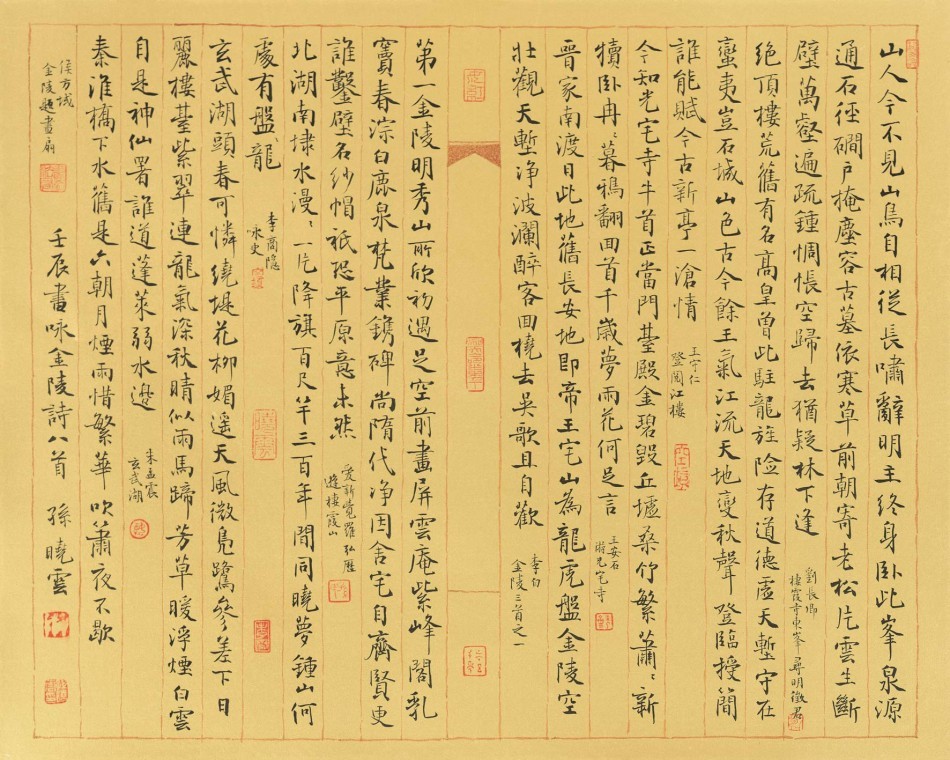 山人今不見山鳥自相從長嘯辭明主終身臥此峯泉源
通石徑磵戶掩塵容古墓依寒草前朝寄老松片雲生斷
壁萬壑遍疏鍾惆悵空歸去猶疑林下逢
劉長卿
棲霞寺東峯尋明徵君
絕頂樓荒舊有名高皇曾此駐龍旌險存道德虛天塹守在
蠻夷豈石城山色古今餘王氣江流天地變秋聲登臨授簡
誰能賦今古新亭一滄情
王守仁
登閱江樓
今知光宅寺牛首正當門臺殿金碧毀丘墟桑竹繁蕭〻新
犢臥冉〻暮鴉翻回首千歲夢雨花何足言
王安石
光宅寺
晉家南渡日此地舊長安地即帝王宅山為龍虎盤金陵空
壯觀天塹淨波瀾醉客回橈去吳歌且自歡
李白
金陵三首之一
第一金陵明秀山所欣初遇足空前畫屏雲庵紫峰閣乳
竇春淙白鹿泉梵業鐫碑尚隋代淨因舍宅自齊賢更
誰鑿壁名紗帽祇恐平原意未然
愛新覺羅弘曆
遊棲霞山
北湖南埭水漫〻一片降旗百尺竿三百年間同曉夢鍾山何
處有盤龍
李商隱
咏史
玄武湖頭春可憐繞堤花柳媚遙天風微鳧鷺參差下日
麗樓臺紫翠連龍氣深秋晴似雨馬蹄芳草暖浮煙白雲
自是神仙署誰道蓬萊弱水邊
朱孟震
玄武湖
秦淮橋下水舊是六朝月煙雨惜繁華吹簫夜不歇
侯方域
金陵題畫扇
壬辰書咏金陵詩八首 孫曉雲